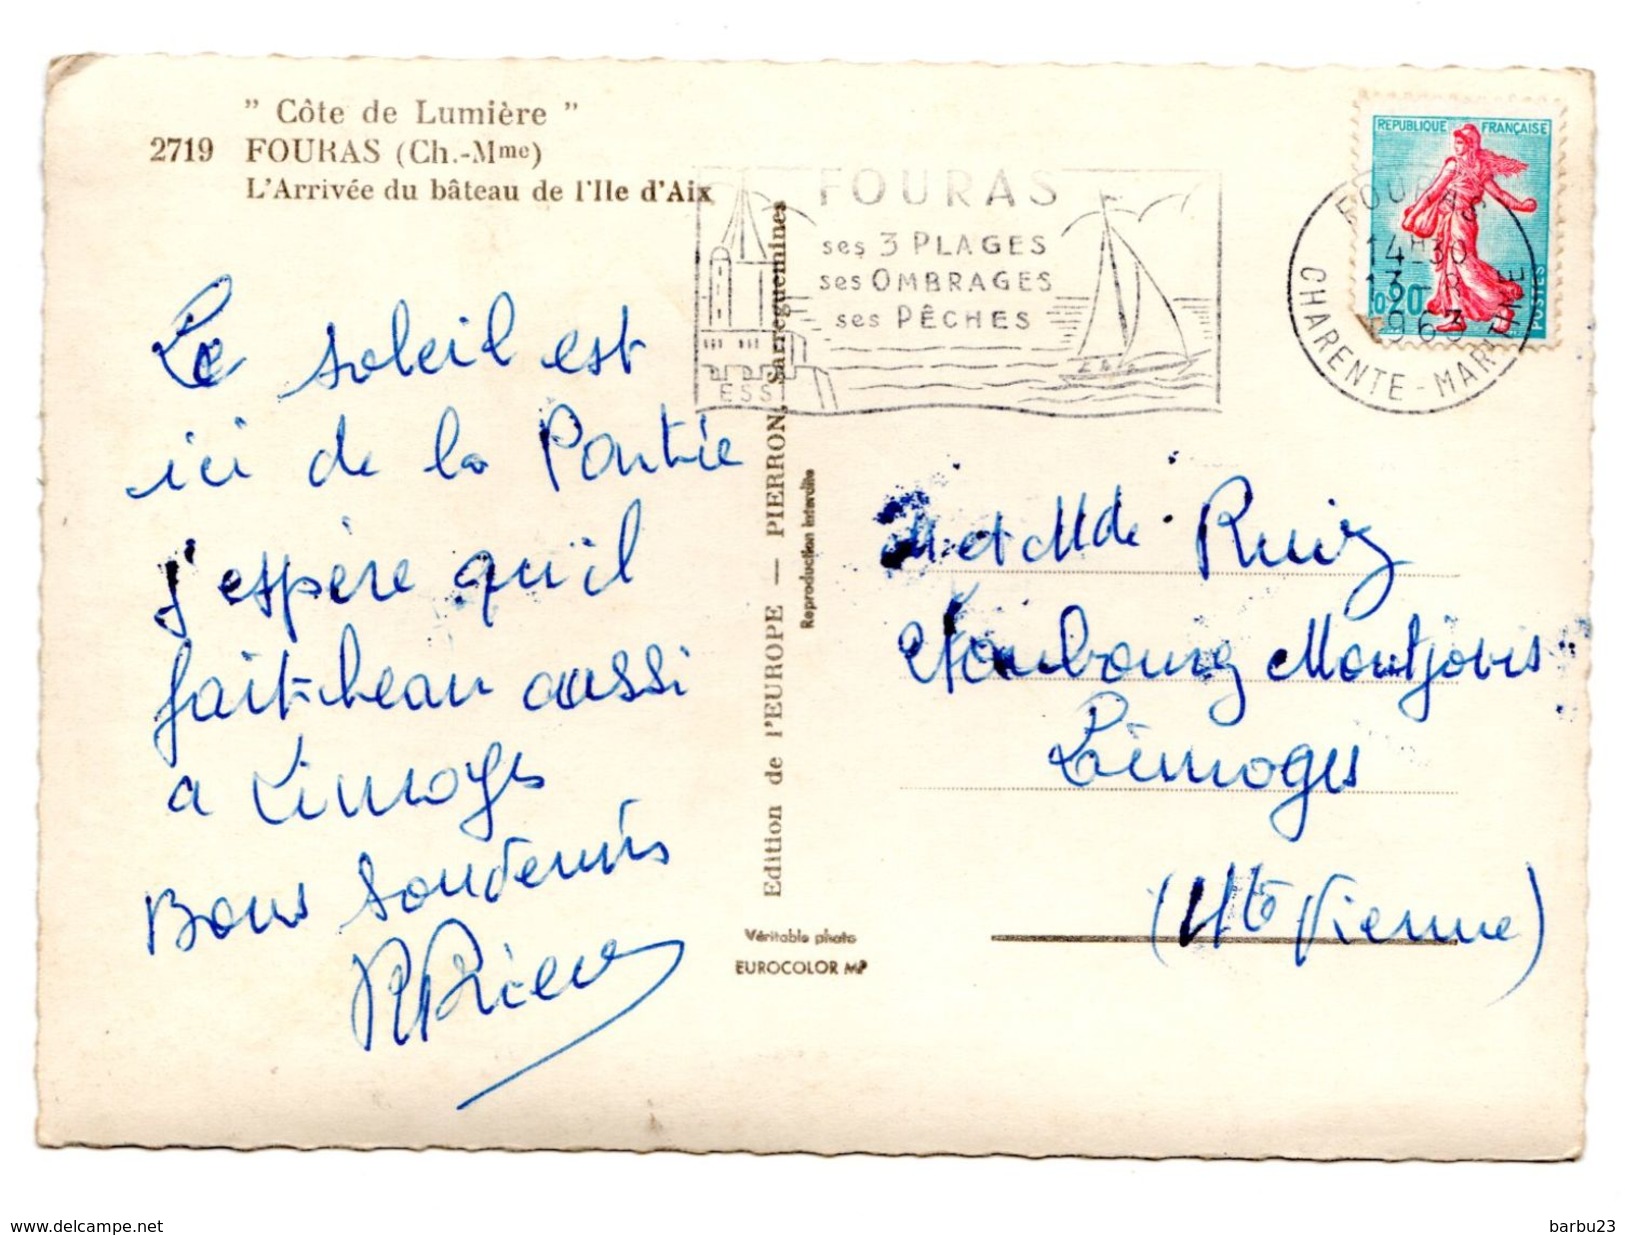 " Côte de Lumière "
2719 FOURAS (Ch.-Mme)
L'Arrivée du bâteau de l'Ile d'Aix
Le soleil est
ici de la Partie
j'espère qu'il
fait beau aussi
a Limoges
Bons Souvenirs
FOURAS
ses 3 PLAGES
ses OMBRAGES
ses PÊCHES
ESS
REPUBLIQUE FRANÇAISE
0,20
POSTES
FOURAS
14H30
13-8
1963
CHARENTE-MARITIME
Edition de l'EUROPE — PIERRON, Sarreguemines
Reproduction interdite
Véritable photo
EUROCOLOR MP
M et Mde Ruiz
Faubourg Montjovis
Limoges
(Hte Vienne)
www.delcampe.net
barbu23